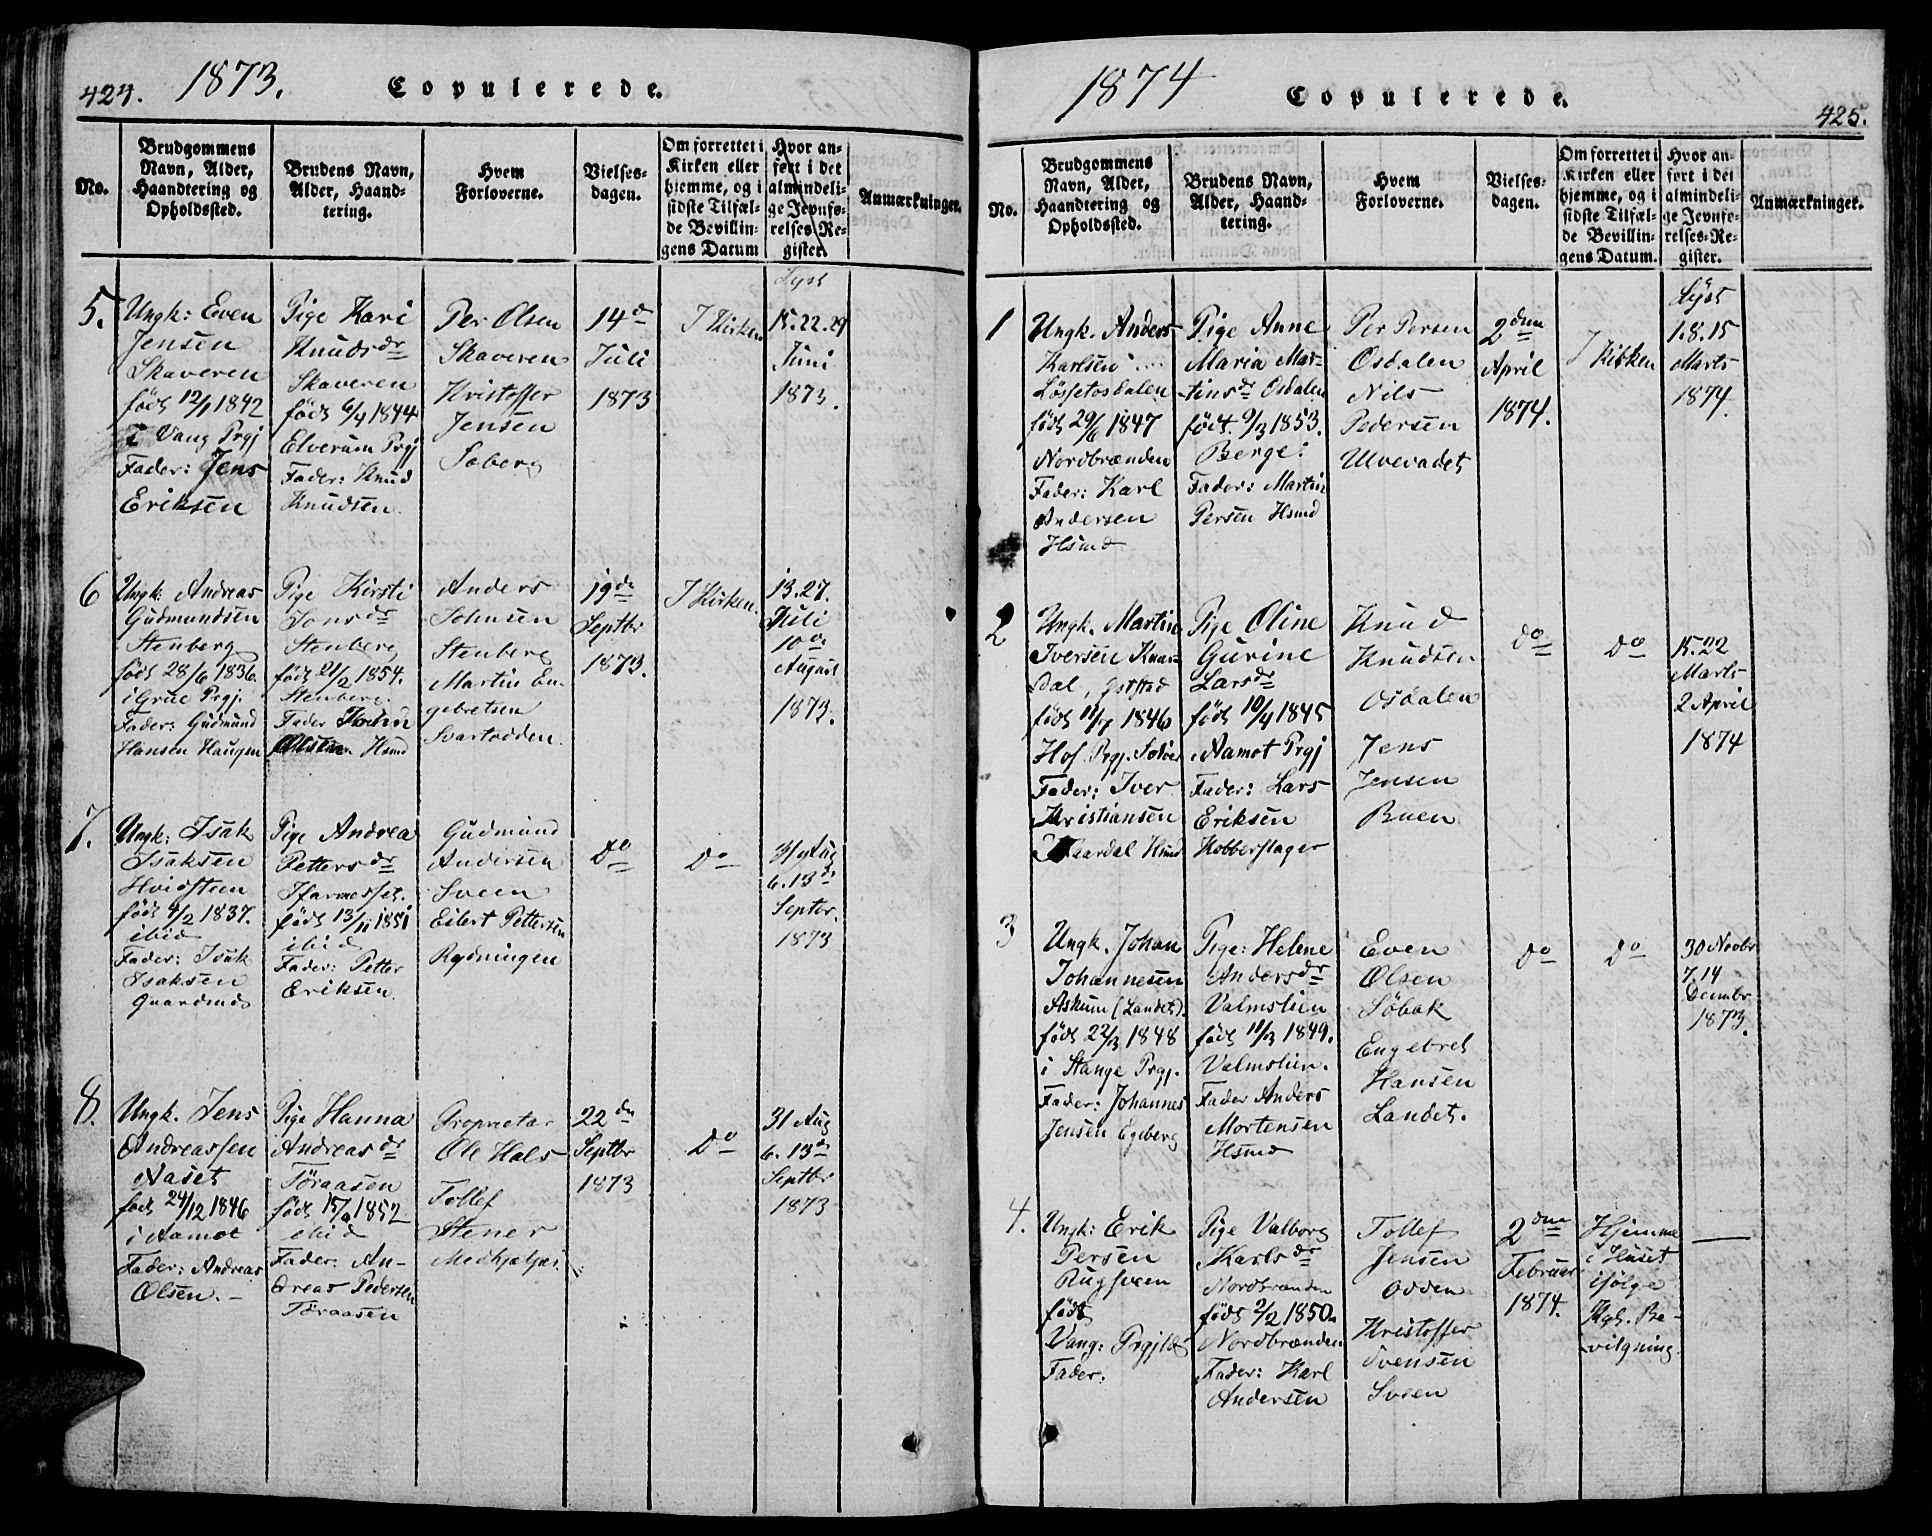 424. 1873. Copulerede.
No.
Brudgommens Navn, Alder, Haandtering og Opholdssted.
Brudens Navn, Alder, Haandtering.
Hvem Forloverne.
Vielsesdagen.
Om forrettet i Kirken eller hjemme, og i sidste Tilfælde Bevillingens Datum
Hvor anført i det almindelige Jevnførelses-Register.
Anmærkninger.
Lyst
5.
Ungk: Even
Jensen
Skaveren
født 12/1 1842
i Vang Prgj
Fader: Jens
Eriksen
Pige Kari
Knudsdr
Skaveren
født 6/4 1844
Elverum Prgj
Fader: Knud
Knudsen.
Per Olsen
Skaveren
Kristoffer
Jensen
Soberg
14d
Juli
1873
I Kirken
15.22.29
Juni
1873.
6
Ungk: Andreas
Gudmundsen
Stenberg
født 28/6 1836.
i Grue Prgj.
Fader: Gudmund
Hansen Haugen
Pige Kirsti
Jonsdr
Stenberg
født 21/2 1854.
Stenberg.
Fader
Olsen Hsmd
Anders
Johnsen
Stenberg
Martin En-
gebretsen
Svartodden.
19de
Septbr
1873.
I Kirken.
13.27.
Juli
10de
August
1873.
7.
Ungk: Isak
Isaksen
Hvidsteen
født 4/2 1837.
ibid
Fader: Isak
Isaksen
Gaardmd
Pige Andrea
Pettersdr
født 13/11 1851
ibid
Fader: Petter
Eriksen.
Gudmund
Andersen
Sveen
Eilert Pettersen
Rydningen
do
do
31 Aug
6.13d
Septbr.
1873
8.
Ungk. Jens
Andreassen
Naset
født 24/12 1846
i Aamot
Fader: Andreas
Olsen. –
Pige Hanna
Andreasdr
Töraasen
født 15/9 1852
ibid
Fader: An-
dreas Pedersen
Töraasen
Proprietær
Ole Hals
Tollef
Stener
Medhjelper
22dn
Septbr
1873
do
31 Aug
6. 13de
Septbr
1873
1874 Copulerede. 425.
No.
Brudgommens Navn, Alder, Haandtering og Opholdssted.
Brudens Navn, Alder, Haandtering.
Hvem Forloverne.
Vielsesdagen.
Om forrettet i Kirken eller hjemme, og i sidste Tilfælde Bevillingens Datum.
Hvor anført i det almindelige Jevnførelses-Register.
Anmærkninger.
Lyst
1
Ungk. Anders
Karlsen
Løssetosdalen
født 29/6 1847
Nordbrænden
Fader: Karl
Andersen
Hsmd
Pige Anne
Maria Mar-
tinsdr Osdalen
født. 9/3 1853.
Berge:
Fader: Martin
Persen Hsmd
Per Persen
Osdalen
Nils
Pedersen
Ulvevadet
2dnn
April
1874.
I Kirken
1.8.15
Marts
1874.
2
Ungk. Martin
Iversen Kaar-
dal,
født 11/7 1846
Hof Prgj. Solør
Fader: Iver
Kristiansen
Kaardal Hsmd
Pige Oline
Gurine
Larsdr
født 10/4 1845
Aamot Prgj
Fader: Lars
Eriksen
Kobberslager
Knud
Knudsen
Osdalen
Jens
Jensen
Buen
do
do
15.22
Marts
2 April
1874
3
Ungk. Johan
Johannesen
Askum (Landet).
født 22/3 1848
i Stange Prgj.
Fader: Johannes
Jensen Egeberg
Pige: Helene
Andersdr
Valmslien
født 11/3 1849.
Valmslien.
Fader Anders
Mortensen
Hsmd
Even
Olsen
Søbak
Engebret
Hansen
Landet.
do
do
30 Novbr
7.14
Decmbr
1873.
4.
Ungk: Erik
Persen
Rugsveen
født
Vang: Prgjld
Fader:
Pige Valborg
Karlsdr
Nordbrænden
født 2/2 1850.
Nordbrænden
Fader: Karl
Andersen
Tollef
Jensen
Odden
Kristoffer
Svensen
Sveen
2den
Februar
1874.
Hjemme
i Huset
ifølge
Kgl. Be-
vilgning
—